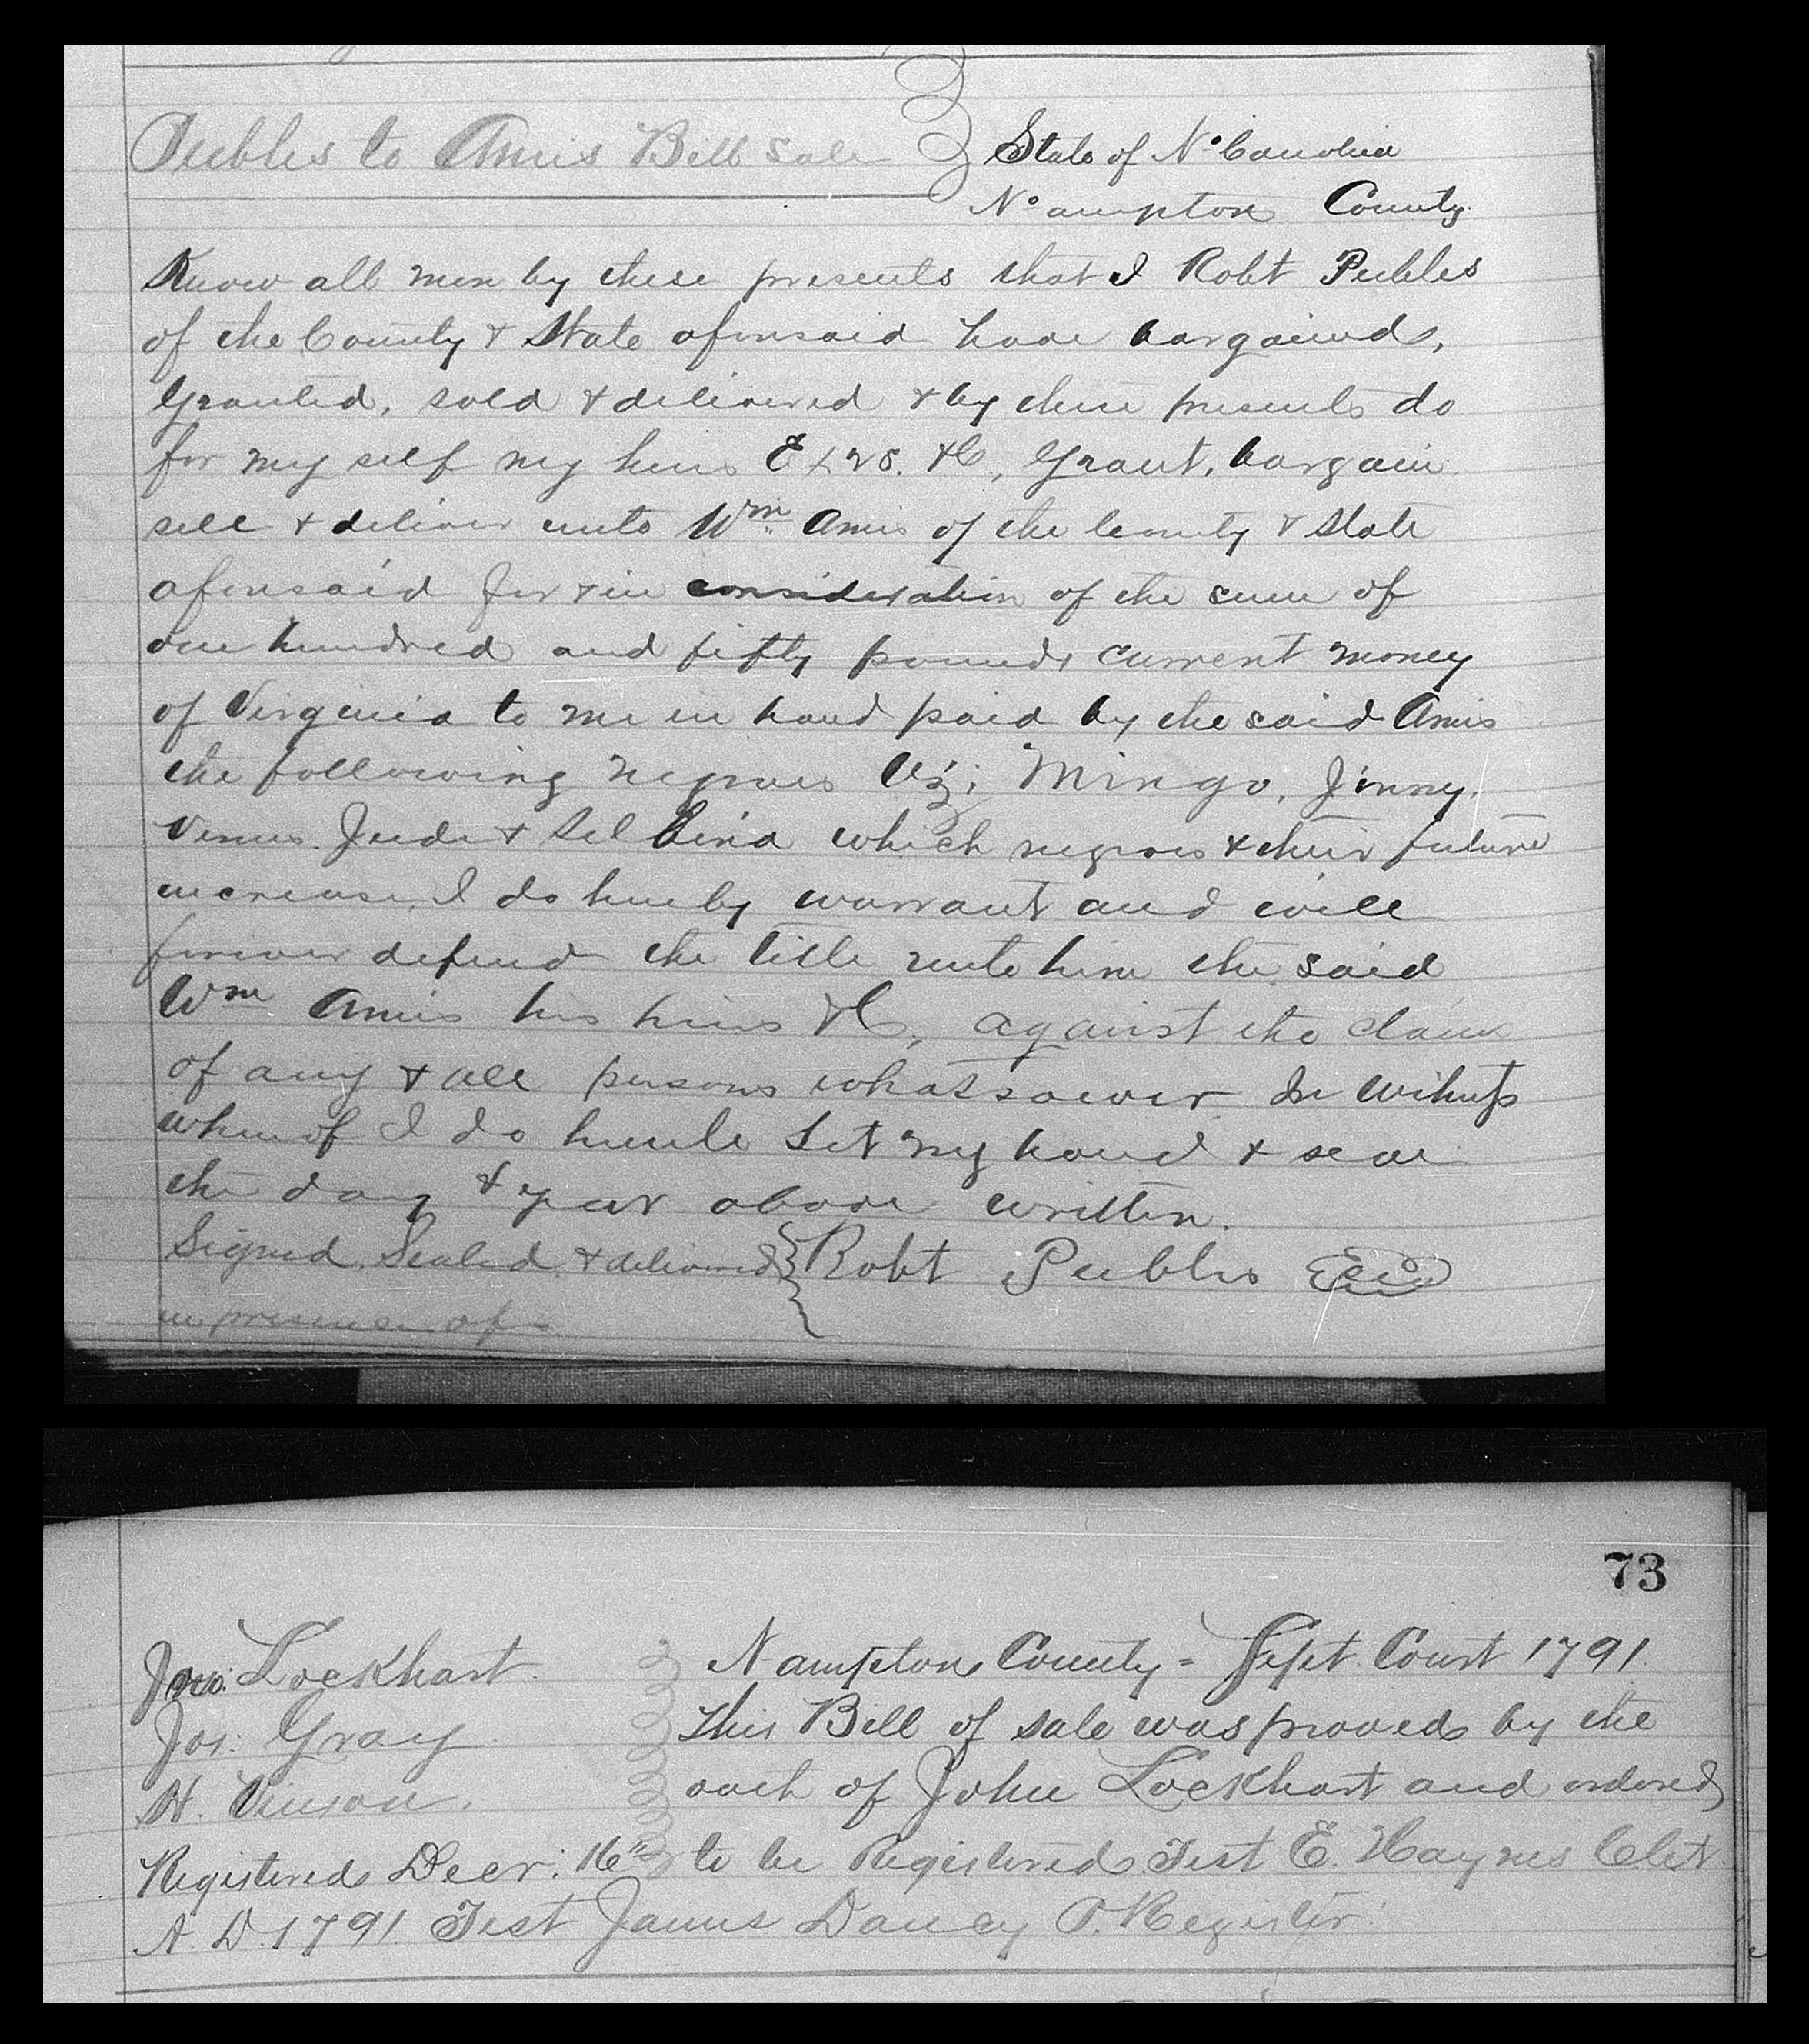 Peebles to Amis Bill Sale
State of No Carolina
No ampton County
Know all men by these presents that I Robt Peebles
of the County & State aforesaid have bargained,
Granted, sold & delivered & by these presents do
for my self my heirs Exrs. &C, Grant, bargain
sell & deliver unto Wm Amis of the County & State
aforesaid for & in consideration of the sum of
one hundred and fifty pounds current money
of Virginia to me in hand paid by the said Amis
the following negroes Viz; Mingo, Jinny,
Venus. Jude & which negroes & their future
increase, I do hereby warrant and will
forever defend the title unto him the said
Wm Amis his heirs &C, against the claim
of any & all persons whatsoever In Witness
whereof I do hereunto Set my hand & seal
the day & year above written.
Signed, Sealed, & delivered } Robt Peebles Seal
in presence of
73
Jno. Lockhart
Jos: Gray
H. Vinson.
Nampton County = Sept. Court 1791
This Bill of sale was proved by the
oath of John Lockhart and ordered
to be Registered Test E. Haynes Clk
Registered Decr: 16th
A. D. 1791. Test James Dancy P. Register.